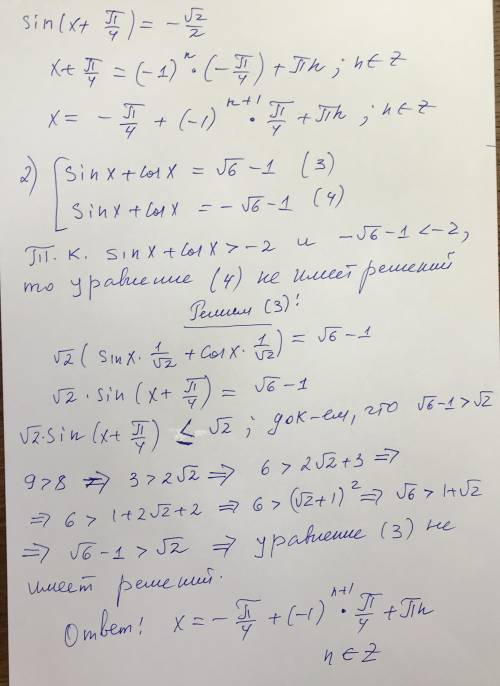 sin(x + π/4) = -√2/2
x + π/4 = (-1)ⁿ · (-π/4) + πn ; n ∈ Z
x = - π/4 + (-1)ⁿ⁺¹ · π/4 + πn ; n ∈ Z
2) [ sin x + cos x = √6 - 1 (3)
sin x + cos x = -√6 - 1 (4)
Т. к. sin x + cos x > -2 и -√6 - 1 < -2,
то уравнение (4) не имеет решений
Решим (3)!
√2 ( sin x · 1/√2 + cos x · 1/√2 ) = √6 - 1
√2 · sin (x + π/4) = √6 - 1
√2 · sin (x + π/4) ≤ √2 ; док-ем, что √6 - 1 > √2
9 > 8 ⇒ 3 > 2√2 ⇒ 6 > 2√2 + 3 ⇒
⇒ 6 > 1 + 2√2 + 2 ⇒ 6 > (√2 + 1)² ⇒ √6 > 1 + √2
⇒ √6 - 1 > √2 ⇒ уравнение (3) не
имеет решений.
Ответ! x = - π/4 + (-1)ⁿ⁺¹ · π/4 + πn
n ∈ Z